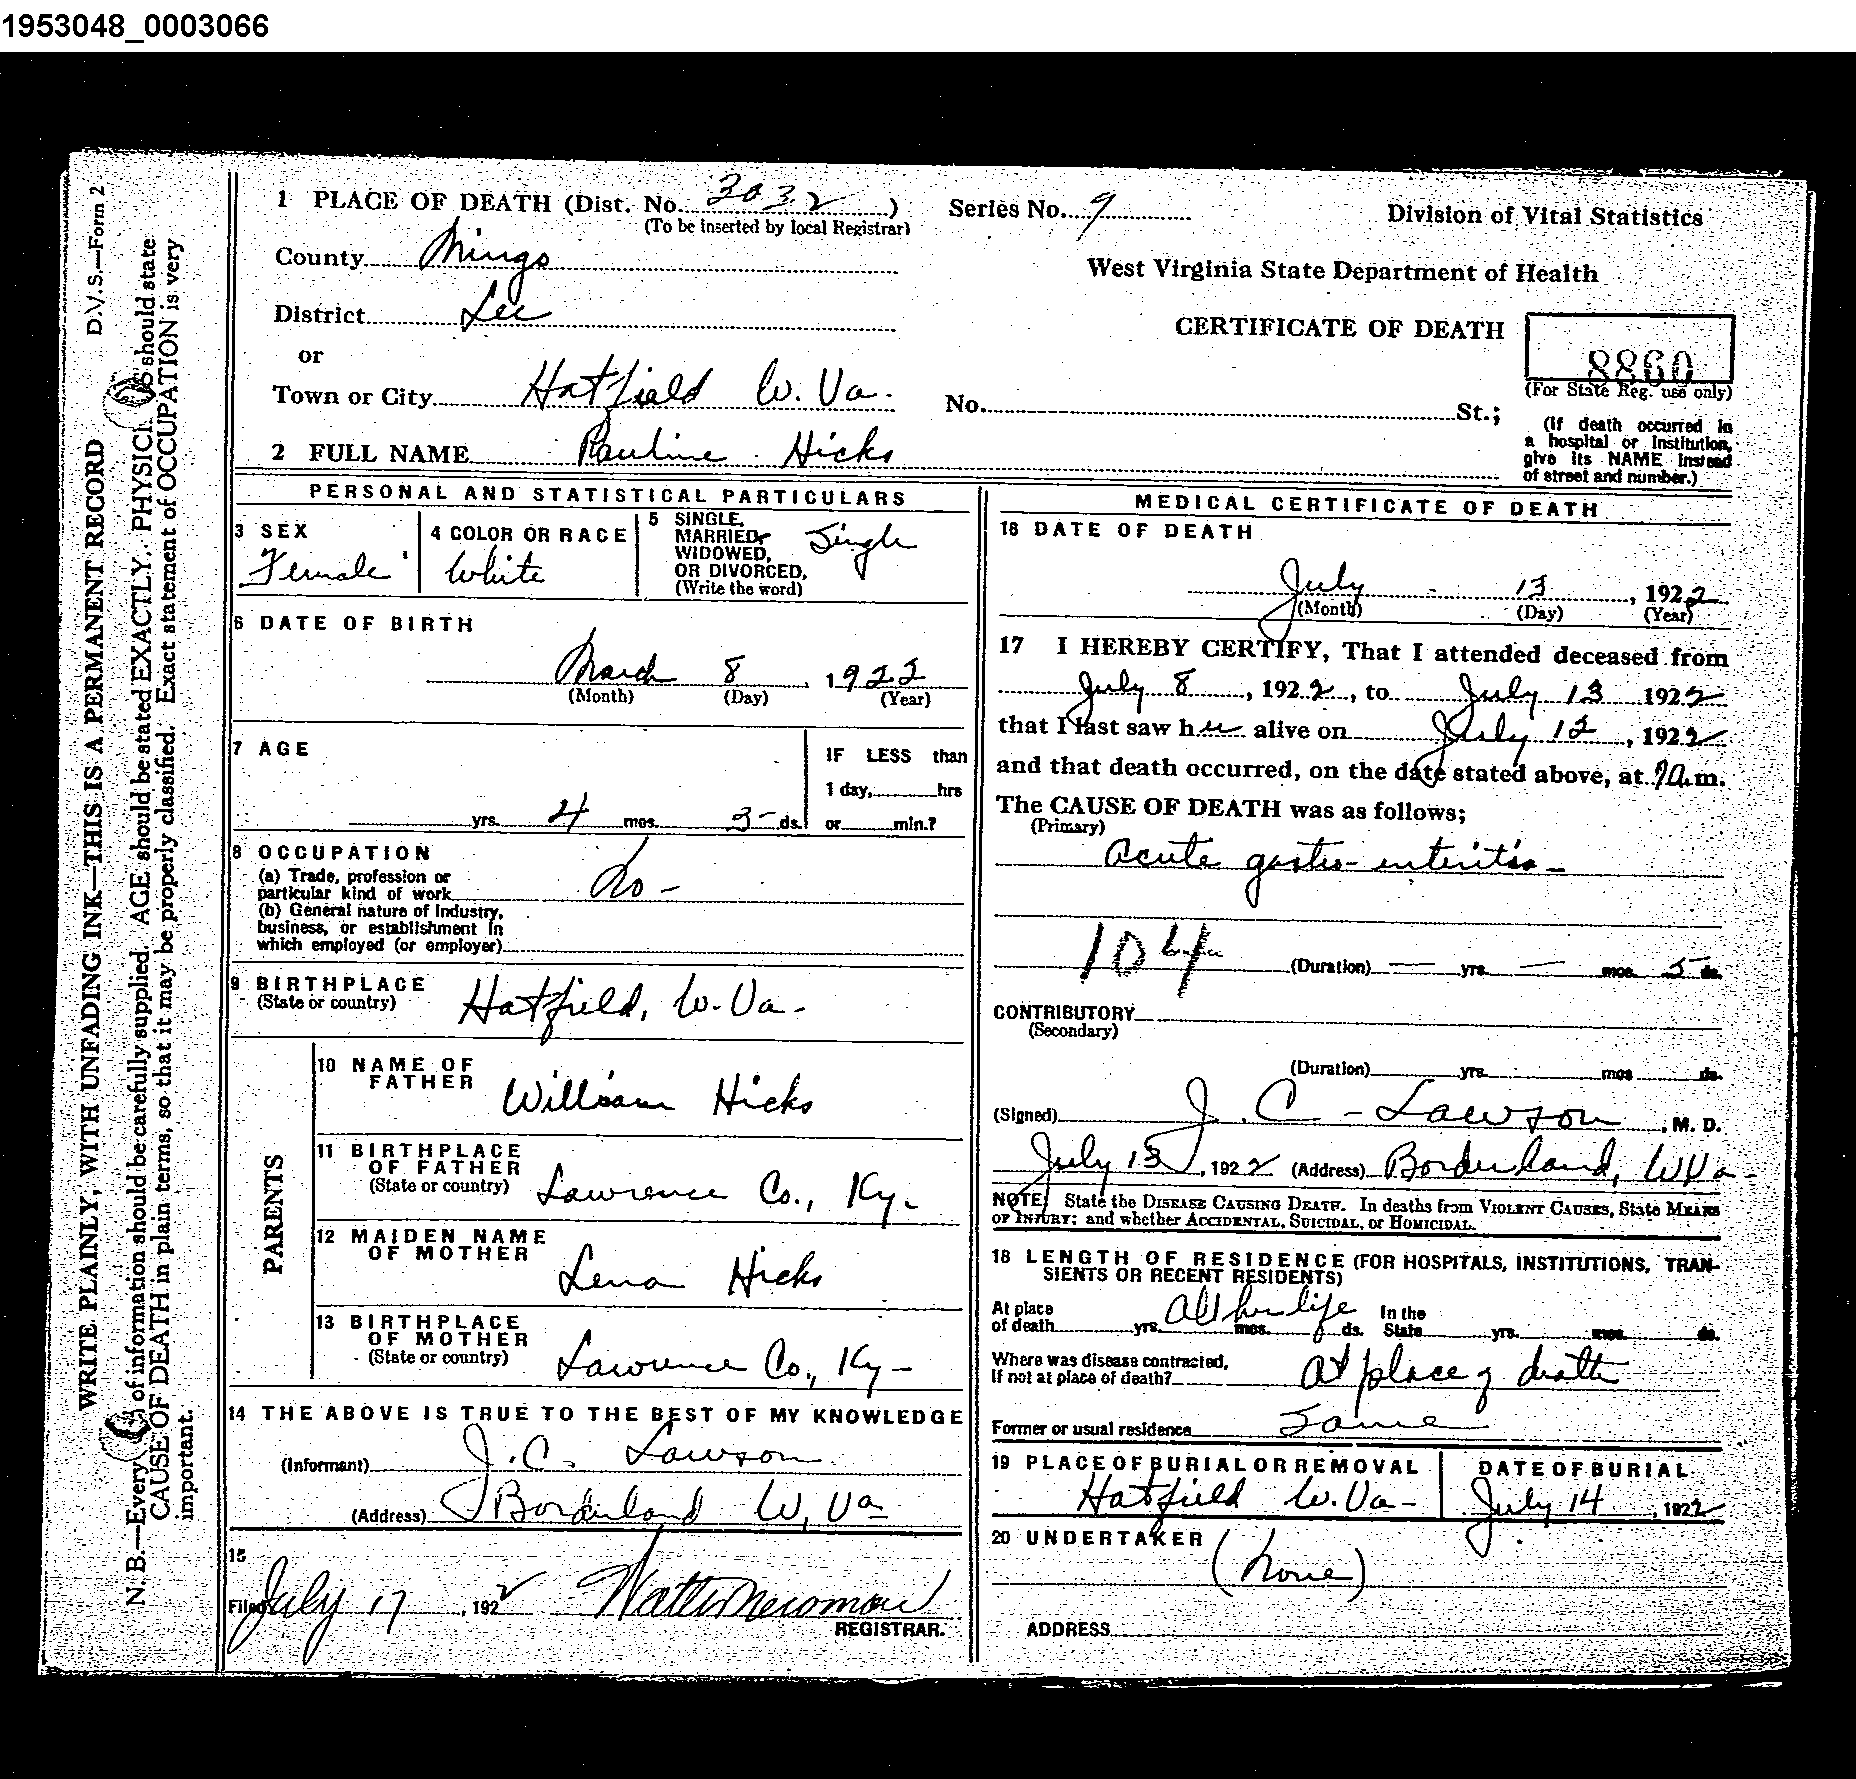 1953048_0003066
D.V.S.—Form 2
WRITE PLAINLY, WITH UNFADING INK—THIS IS A PERMANENT RECORD
N. B.—Every of information should be carefully supplied. AGE should be stated EXACTLY. PHYSICI should state
CAUSE OF DEATH in plain terms, so that it may be properly classified. Exact statement of OCCUPATION is very
important.
1 PLACE OF DEATH (Dist. No. 3032)
(To be inserted by local Registrar)
Series No. 9
Division of Vital Statistics
County Mingo
West Virginia State Department of Health
District Lee
CERTIFICATE OF DEATH
8860
(For State Reg. use only)
or
Town or City Hatfield W. Va.
No. St.;
(If death occurred in
a hospital or Institution,
give its NAME instead
of street and number.)
2 FULL NAME Pauline Hicks
PERSONAL AND STATISTICAL PARTICULARS
3 SEX
Female
4 COLOR OR RACE
White
5 SINGLE,
MARRIED,
WIDOWED,
OR DIVORCED,
(Write the word)
Single
6 DATE OF BIRTH
March 8, 1922
(Month) (Day) (Year)
7 AGE
yrs. 4 mos. 5 ds.
IF LESS than
1 day, hrs
or min.?
8 OCCUPATION
(a) Trade, profession or
particular kind of work No -
(b) General nature of Industry,
business, or establishment in
which employed (or employer)
9 BIRTHPLACE
(State or country) Hatfield, W. Va -
PARENTS
10 NAME OF
FATHER
William Hicks
11 BIRTHPLACE
OF FATHER
(State or country) Lawrence Co., Ky -
12 MAIDEN NAME
OF MOTHER
Lena Hicks
13 BIRTHPLACE
OF MOTHER
(State or country) Lawrence Co., Ky -
14 THE ABOVE IS TRUE TO THE BEST OF MY KNOWLEDGE
(Informant) J. C. Lawson
(Address) Borderland W. Va
15
Filed July 17, 1922 Watt Newman
REGISTRAR.
MEDICAL CERTIFICATE OF DEATH
16 DATE OF DEATH
July 13, 1922
(Month) (Day) (Year)
17 I HEREBY CERTIFY, That I attended deceased from
July 8, 1922, to July 13 1922
that I last saw her alive on July 12, 1922
and that death occurred, on the date stated above, at 9 a.m.
The CAUSE OF DEATH was as follows;
(Primary)
Acute gastro-enteritis -
104
(Duration) — yrs. — mos. 5 ds.
CONTRIBUTORY
(Secondary)
(Duration) yrs. mos ds.
(Signed) J. C - Lawson, M. D.
July 13, 1922 (Address) Borderland, W Va -
NOTE State the DISEASE CAUSING DEATH. In deaths from VIOLENT CAUSES, State MEANS
OF INJURY; and whether ACCIDENTAL, SUICIDAL, or HOMICIDAL.
18 LENGTH OF RESIDENCE (FOR HOSPITALS, INSTITUTIONS, TRAN-
SIENTS OR RECENT RESIDENTS)
At place
of death yrs. mos. ds. All her life
In the
State yrs. mos. ds.
Where was disease contracted,
If not at place of death? At place of death
Former or usual residence Same
19 PLACE OF BURIAL OR REMOVAL
Hatfield W. Va -
DATE OF BURIAL
July 14, 1922
20 UNDERTAKER
(None)
ADDRESS